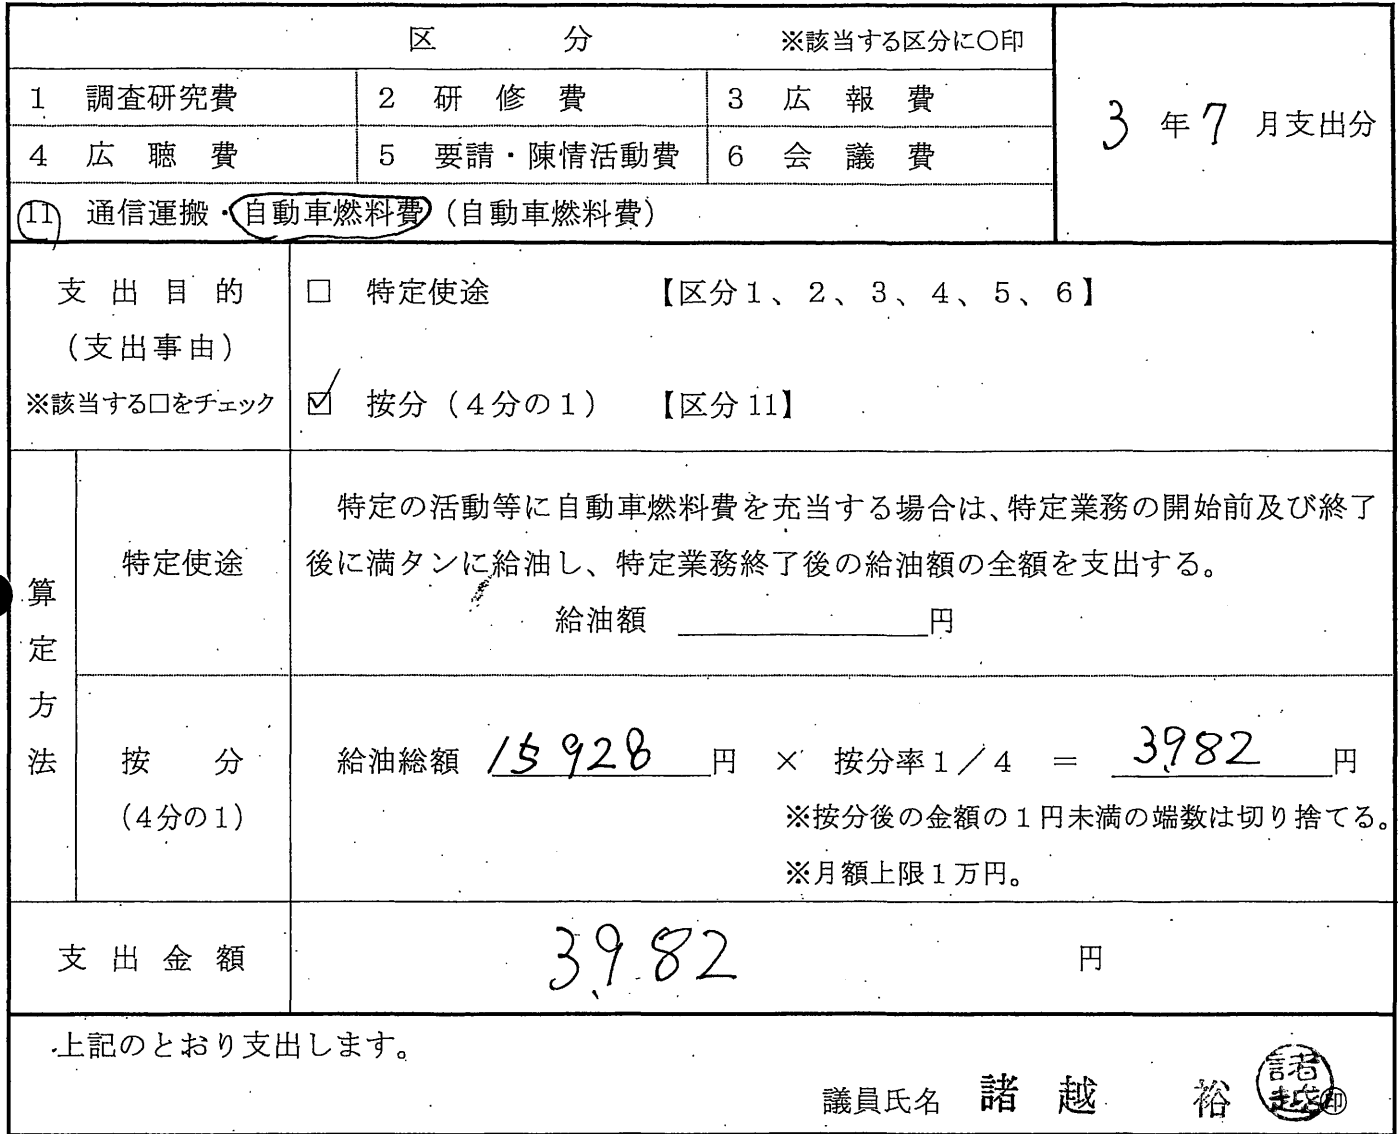 区 分 ※該当する区分に〇印
1 調査研究費 2 研 修 費 3 広 報 費
3 年 7 月支出分
4 広 聴 費 5 要請・陳情活動費 6 会 議 費
11 通信運搬・自動車燃料費（自動車燃料費）
支 出 目 的
（支出事由）
※該当する□をチェック
□ 特定使途 【区分1、2、3、4、5、6】
☑ 按分（4分の1） 【区分11】
算定方法
特定使途
特定の活動等に自動車燃料費を充当する場合は、特定業務の開始前及び終了
後に満タンに給油し、特定業務終了後の給油額の全額を支出する。
給油額 円
按 分
（4分の1）
給油総額 15928 円 × 按分率1／4 ＝ 3,982 円
※按分後の金額の1円未満の端数は切り捨てる。
※月額上限1万円。
支 出 金 額 3,982 円
上記のとおり支出します。
議員氏名 諸 越 裕 諸越 ㊞